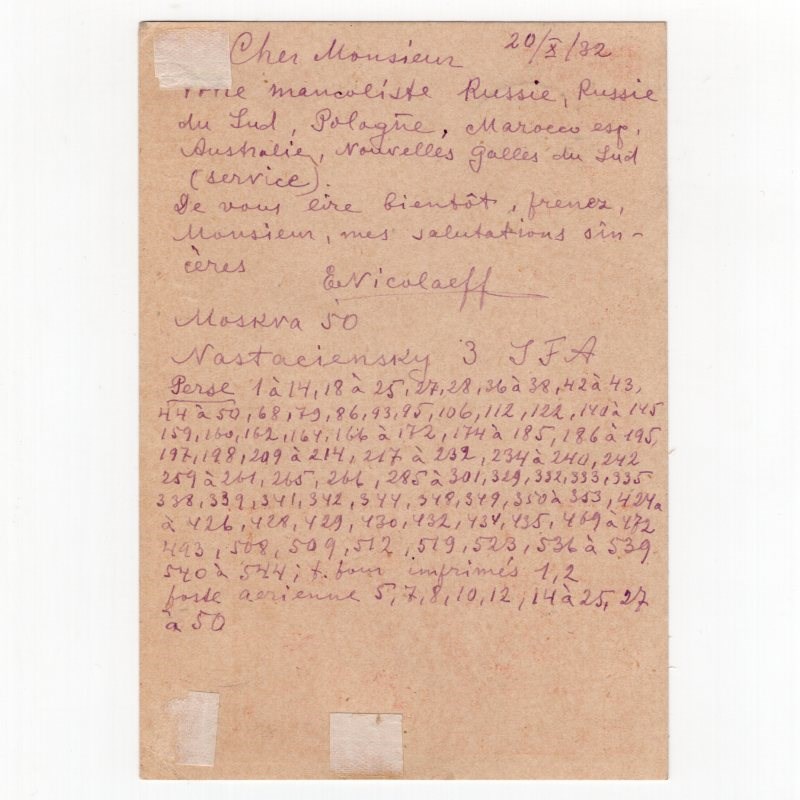 Cher Monsieur 20/X/32
mancoliste Russie, Russie
du Sud, Pologne, Marocco esp.
Australie, Nouvelles Galles du Sud
(service).
De vous lire bientôt, prenez,
Monsieur, mes salutations sin-
cères
E. Nicolaeff
Moskva 50
Nastaciensky 3 SFA
Perse 1 à 14, 18 à 25, 27, 28, 36 à 38, 42 à 43,
44 à 50, 68, 79, 86, 93, 95, 106, 112, 122, 140 à 145
159, 160, 162, 164, 166 à 172, 174 à 185, 186 à 195,
197, 198, 209 à 214, 217 à 232, 234 à 240, 242
259 à 261, 265, 266, 285 à 301, 329, 332, 333, 335
338, 339, 341, 342, 344, 348, 349, 350 à 353, 424a
à 426, 428, 429, 430, 432, 434, 435, 469 à 472
493, 508, 509, 512, 519, 523, 536 à 539
540 à 544; t. pour imprimés 1, 2
poste aerienne 5, 7, 8, 10, 12, 14 à 25, 27
à 50